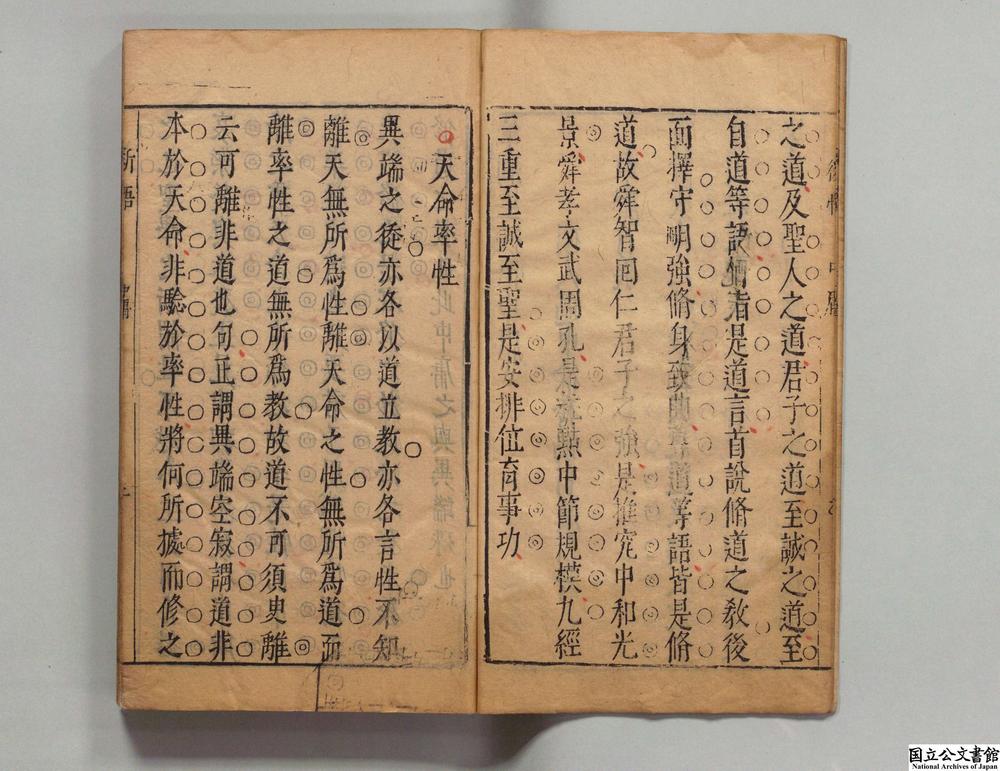 之道及聖人之道君子之道至誠之道至
自道等語俱者是道言首說脩道之教後
面擇守明強脩身致曲尊道等語皆是脩
道故舜智回仁君子之強是推究中和光
景舜孝文武周孔是就點中節規模九經
三重至誠至聖是安排位育事功
天命率性
異端之徒亦各以道立教亦各言性不知
離天無所爲性離天命之性無所爲道而
離率性之道無所爲教故道不可須臾離
云可離非道也句正謂異端空寂謂道非
本於天命非驗於率性將何所據而修之
新語
国立公文書館
National Archives of Japan